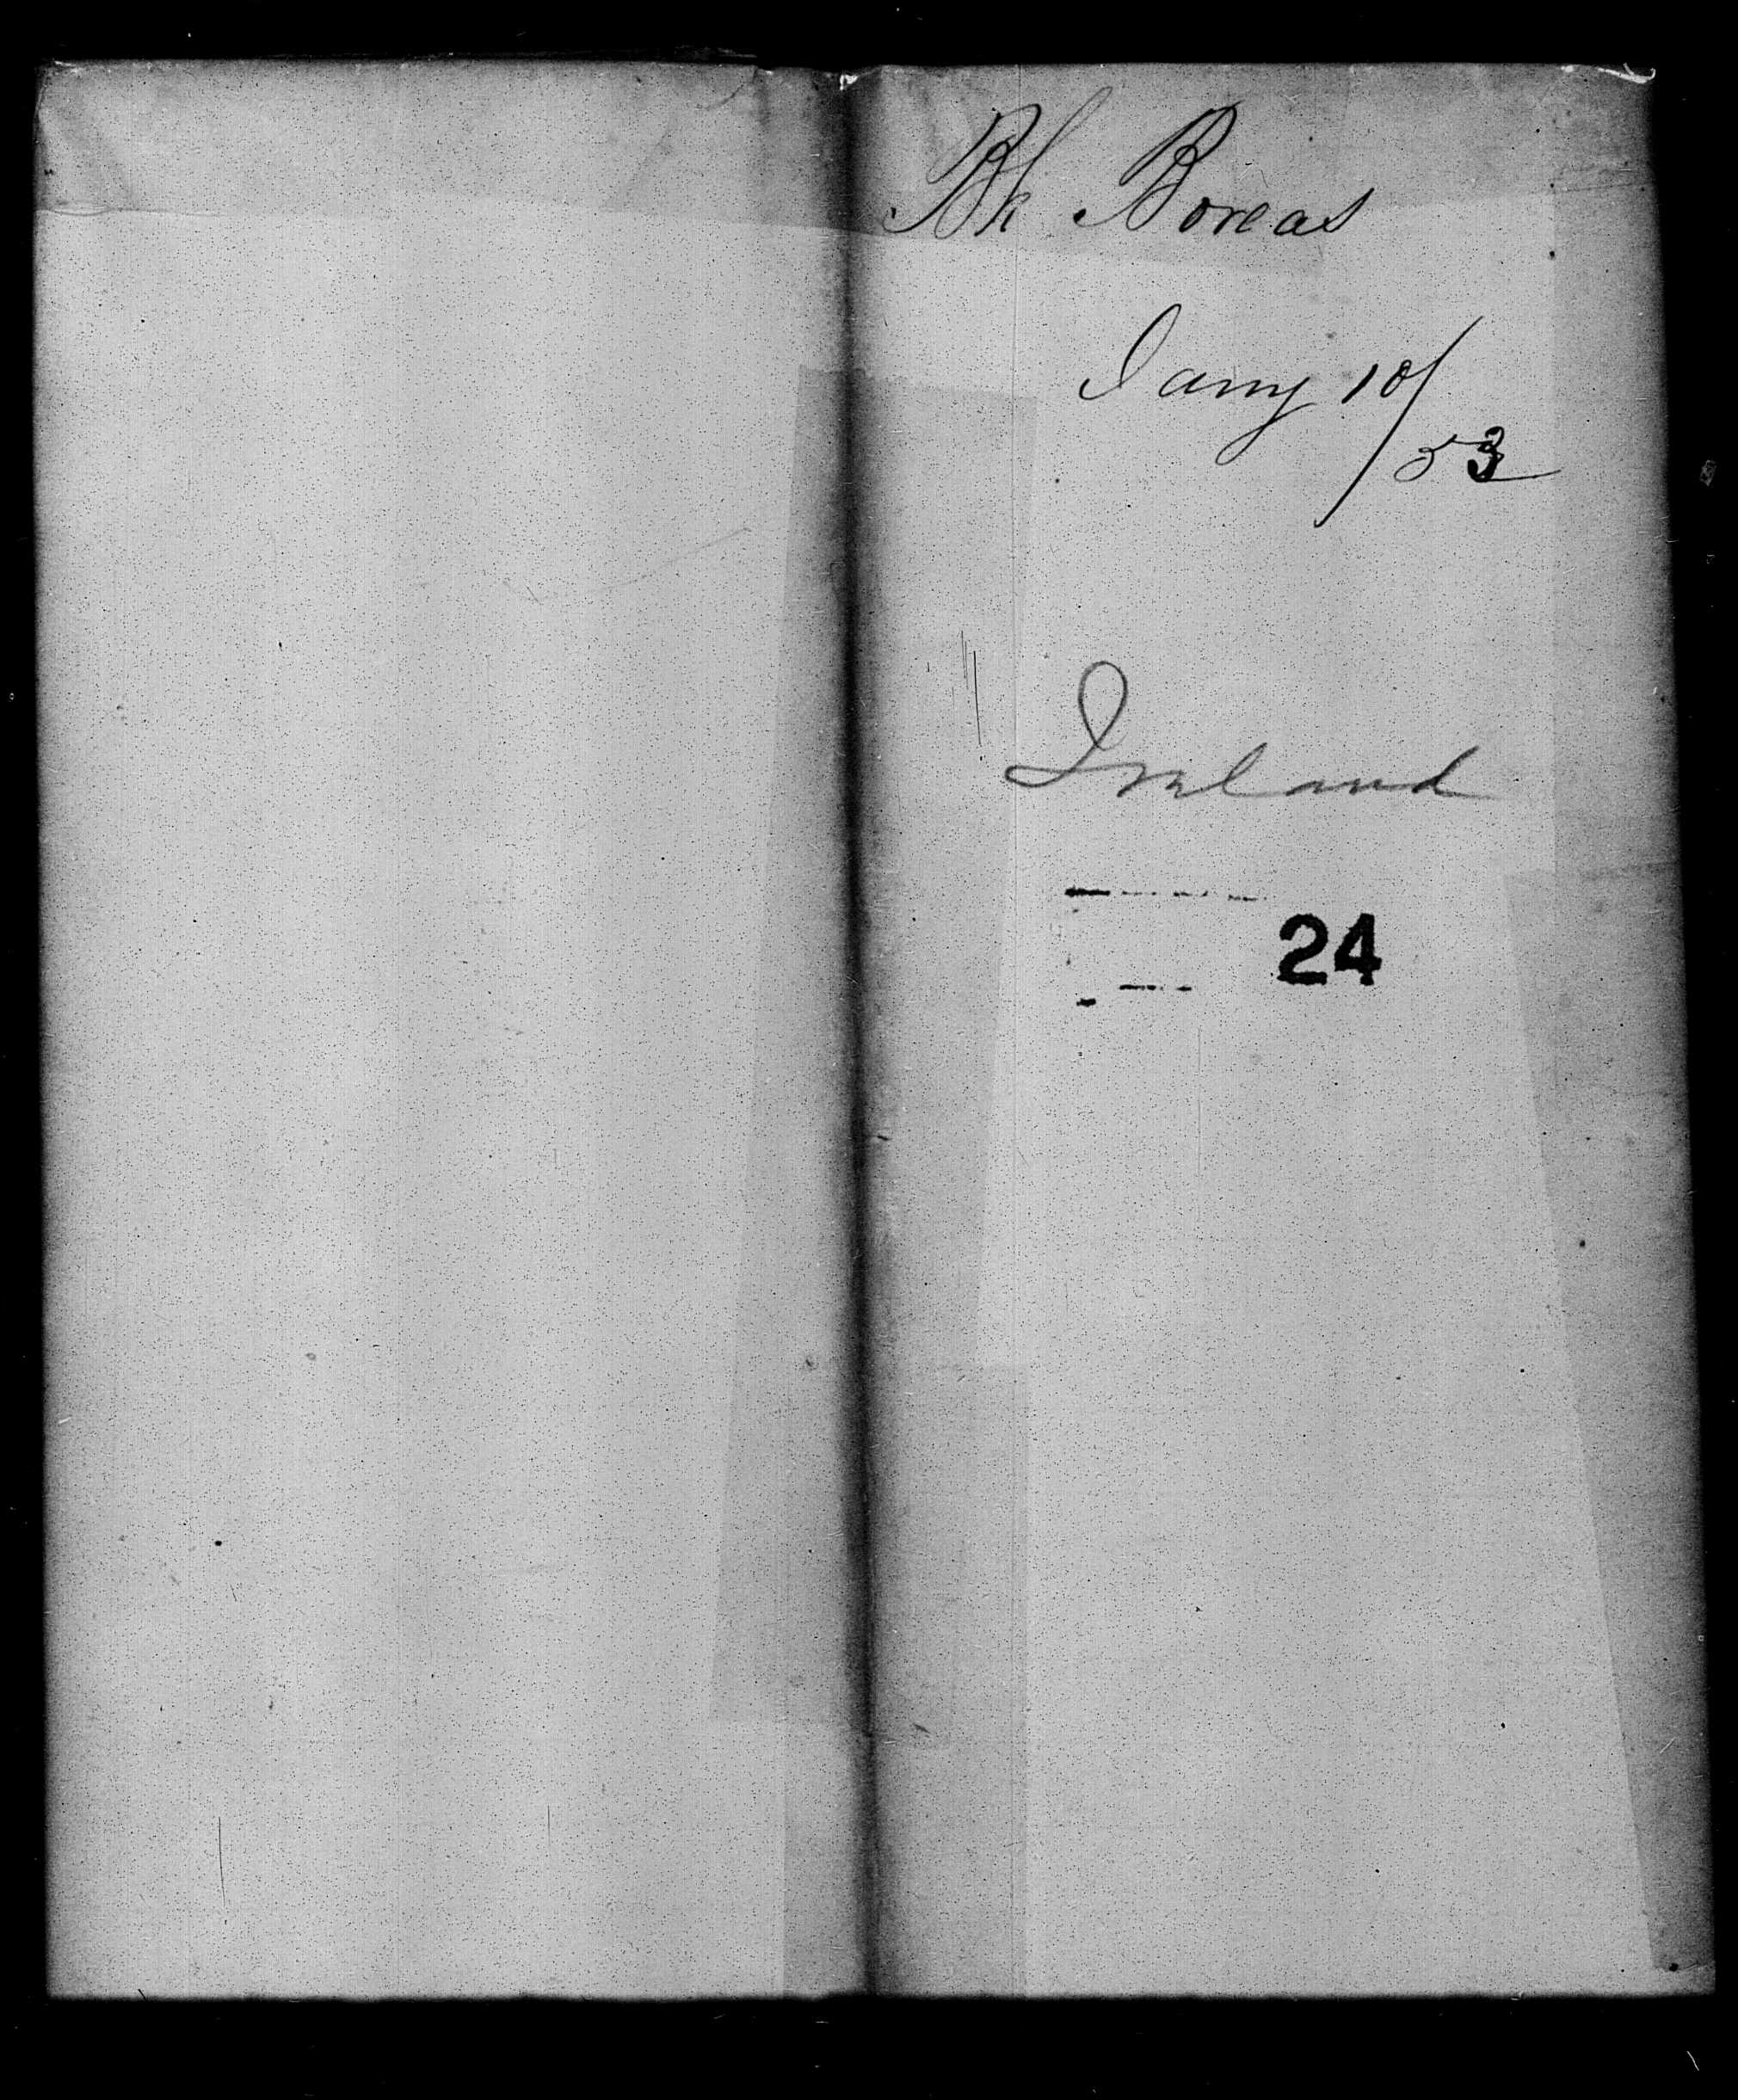 Bk Boreas
Jany 10/
53
Ireland
24